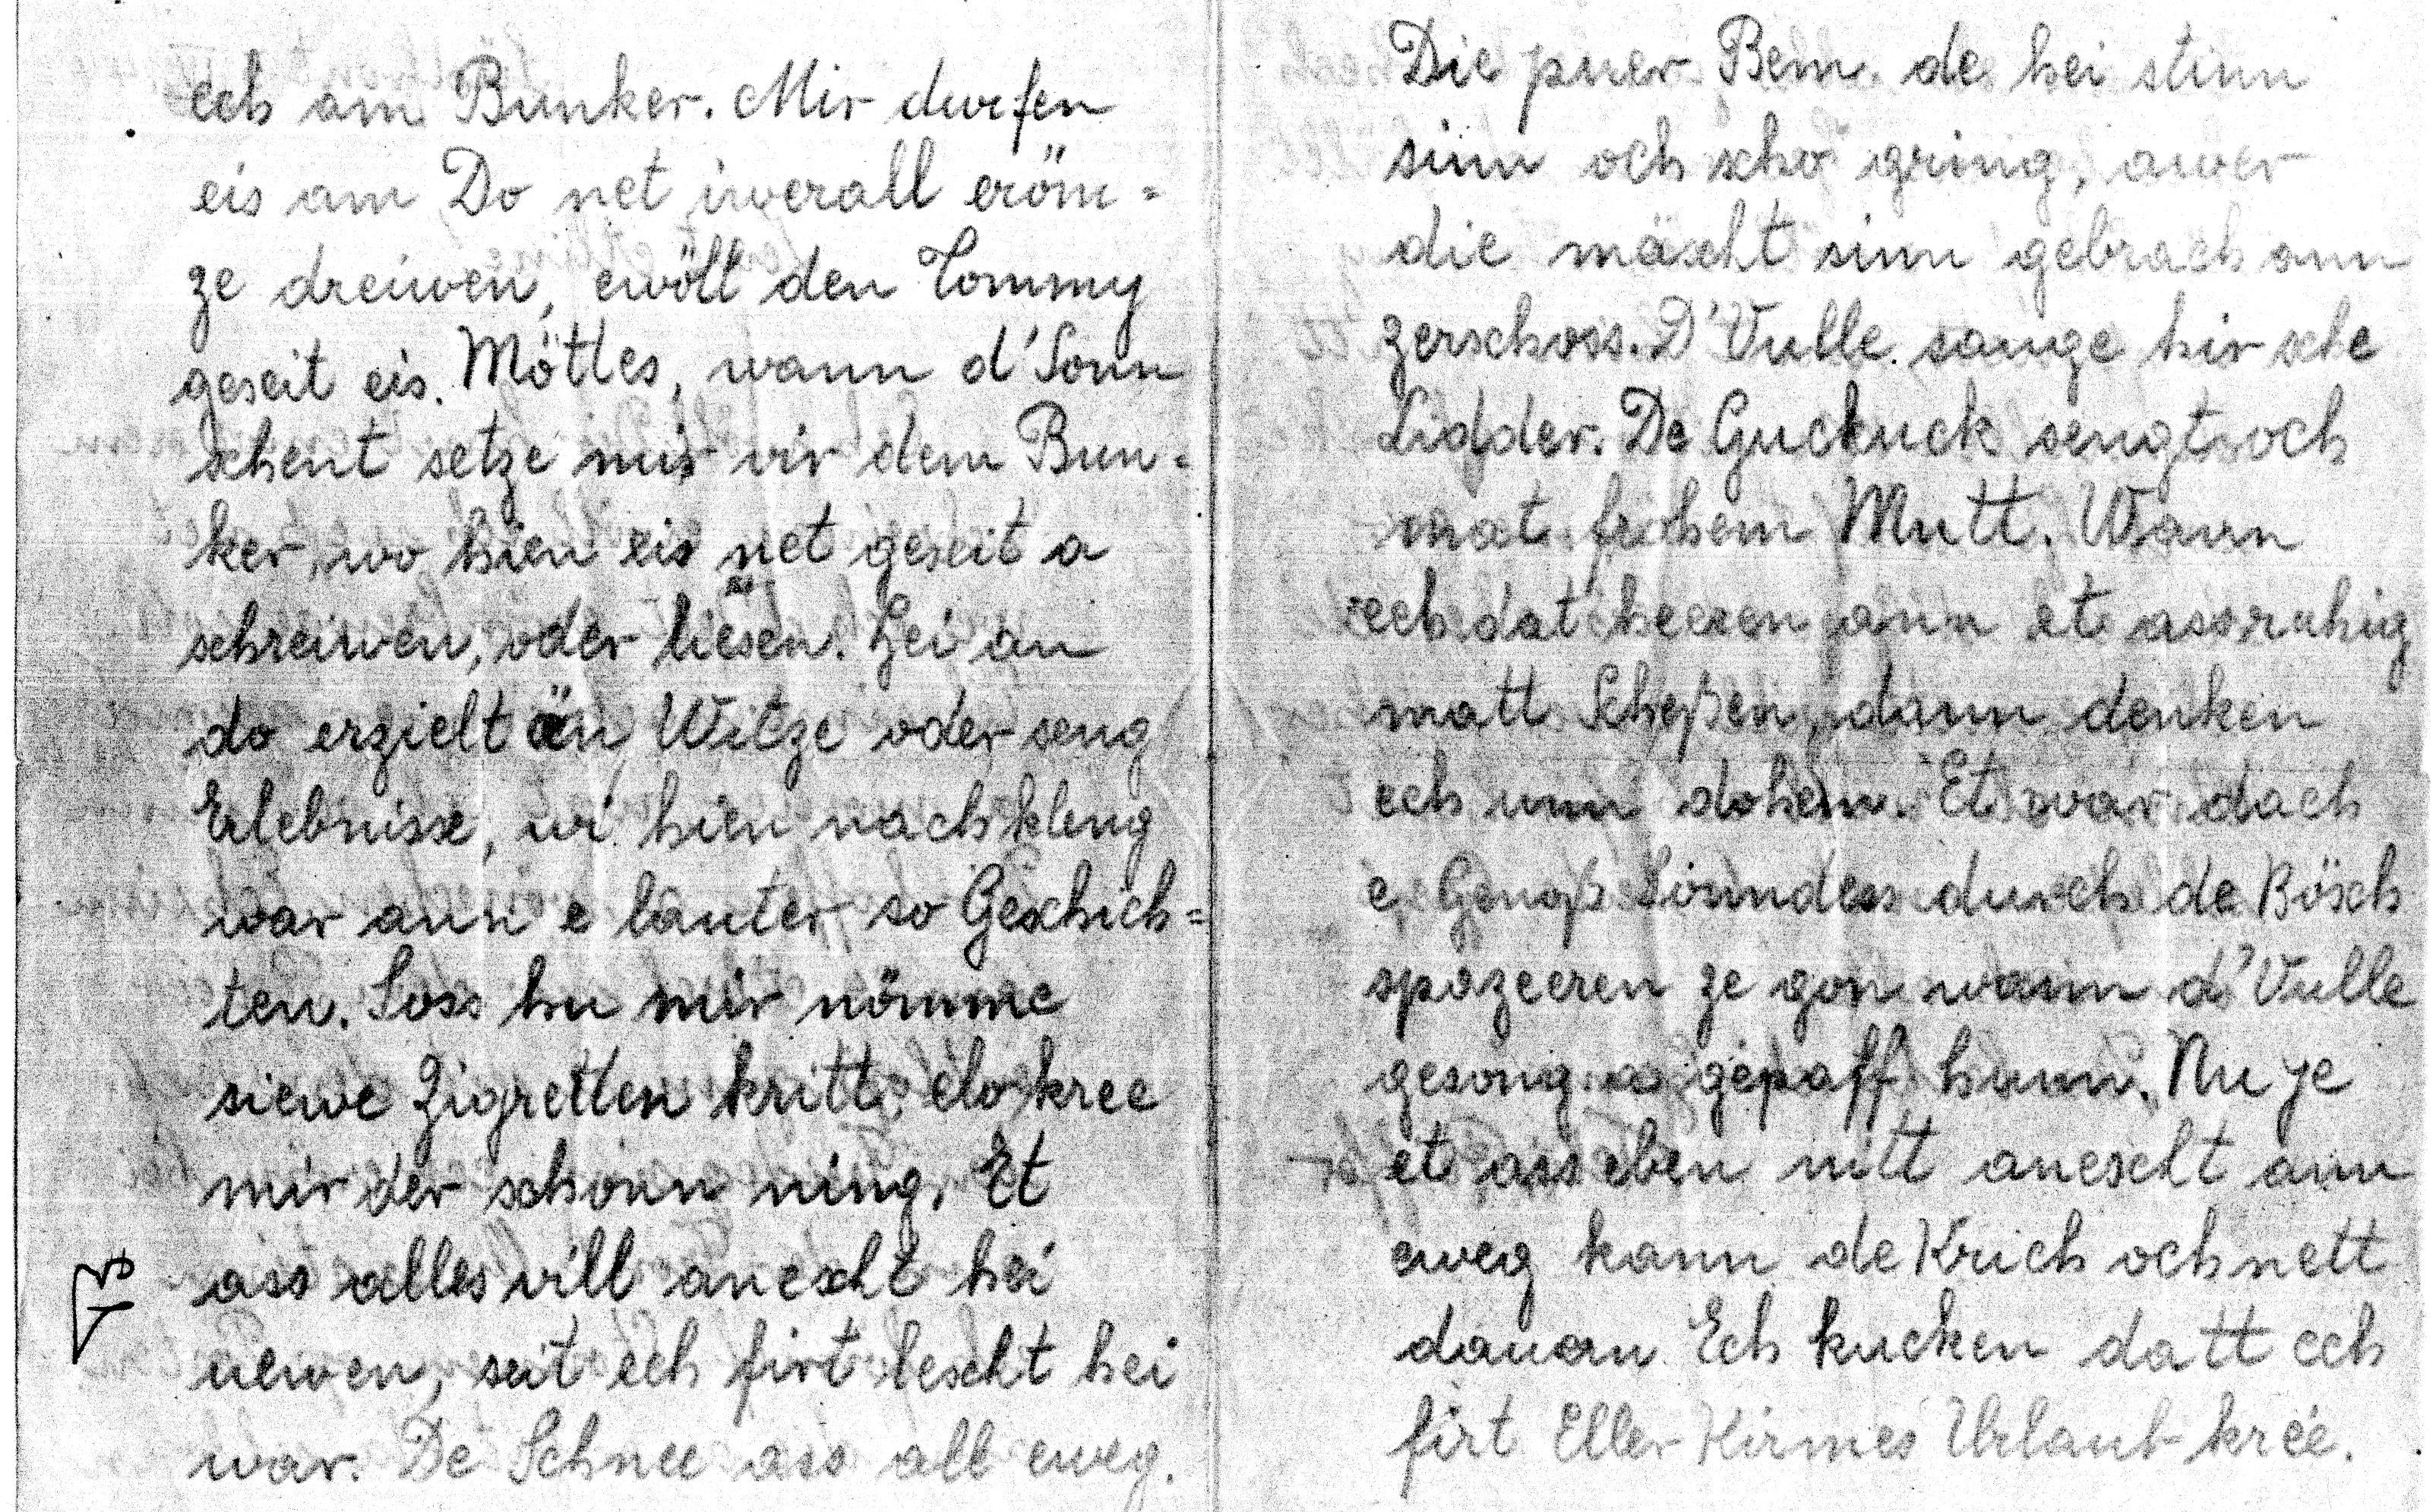 ech am Bunker. Mir durfen
eis am Do net iwerall eröm=
ze dreiwen, ewöll den Tommy
geseit eis. Möttes, wann d'Sonn
schent setze mir vir dem Bun=
ker, wo hien eis net geseit a
schreiwen, oder liesen. Hei an
do erzielt än Witze oder seng
Erlebnisse, wi hien nach kleng
war ann e lauter so Geschich=
ten. Soss hu mir nömme
siewe Zigretten kritt, elo kree
mir der schonn ning. Et
ass alles vill anescht hei
uewen, seit ech firt lescht hei
war. De Schnee ass all eweg.
Die puer Bem de hei stinn
sinn och scho gring, awer
die mäscht sinn gebrach ann
zerschoss. D'Vulle sange hir sche
Lidder. De Guckuck sengt och
mat frohem Mutt. Wann
ech dat heeren ann et ass ruhig
matt Scheßen, dann denken
ech unn dohem. Et war dach
e Genoß Sonndes durch de Bösch
spazeeren ze gon wann d'Vulle
gesong a gepaff hunn. Nu je
et ass eben nitt anescht ann
eweg kann de Krich och nett
dauern. Ech kucken datt ech
firt Eller Kirmes Urlaub kreé.